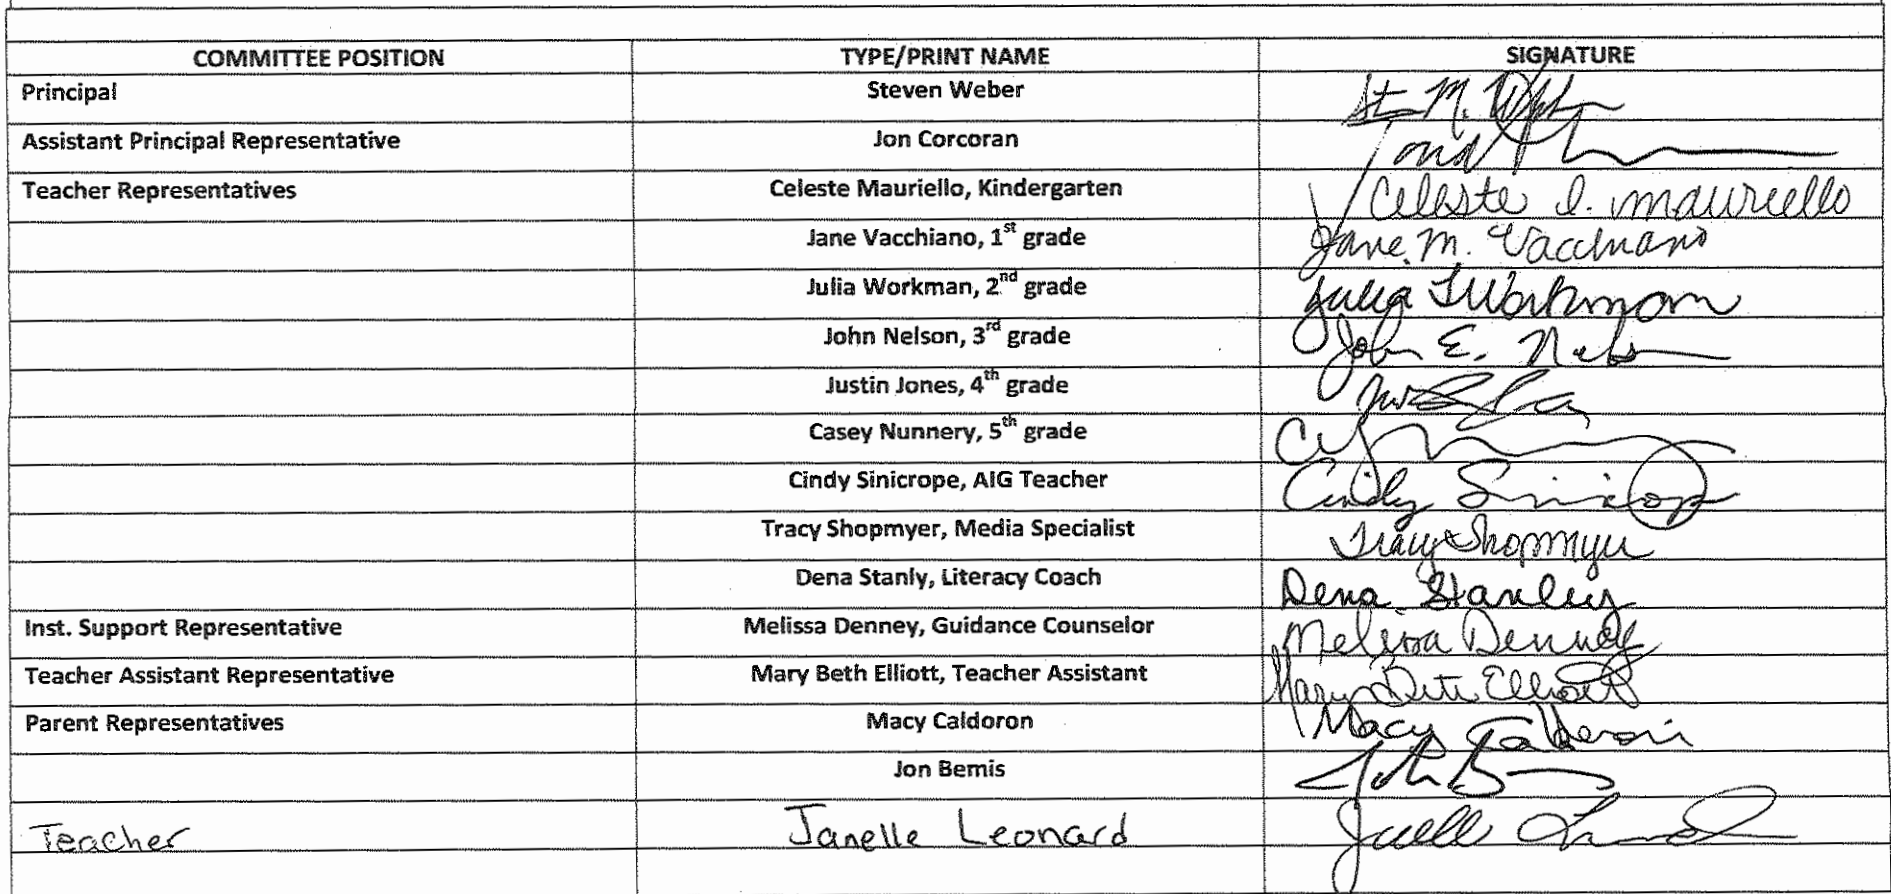 COMMITTEE POSITION TYPE/PRINT NAME SIGNATURE
Principal Steven Weber
Assistant Principal Representative Jon Corcoran
Teacher Representatives Celeste Mauriello, Kindergarten Celeste I. Mauriello
Jane Vacchiano, 1st grade Jane M. Vacchiano
Julia Workman, 2nd grade Julia Workman
John Nelson, 3rd grade John E. Nelson
Justin Jones, 4th grade
Casey Nunnery, 5th grade
Cindy Sinicrope, AIG Teacher Cindy Sinicrop
Tracy Shopmyer, Media Specialist Tracy Shopmyer
Dena Stanly, Literacy Coach Dena Stanley
Inst. Support Representative Melissa Denney, Guidance Counselor Melissa Denney
Teacher Assistant Representative Mary Beth Elliott, Teacher Assistant Mary Beth Elliott
Parent Representatives Macy Caldoron Macy Calderon
Jon Bemis
Teacher Janelle Leonard